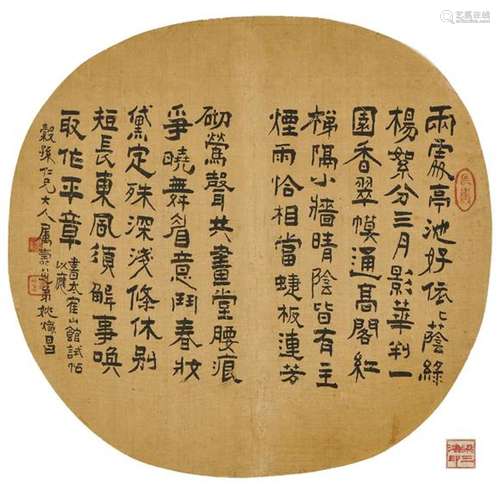 雨霽亭池好低〻蔭綠
楊絮分三月影華判一
園香翠幙通高閣紅
梯隔小牆晴陰皆有主
煙雨恰相當蜨板連芳
砌鶯聲共畫堂腰痕
爭曉舞眉意鬥春妝
黛定殊深淺條休別
短長東風須解事喚
取作平章
書太隺山館試帖
以應
穀孫仁兄大人屬 弟姚 昌